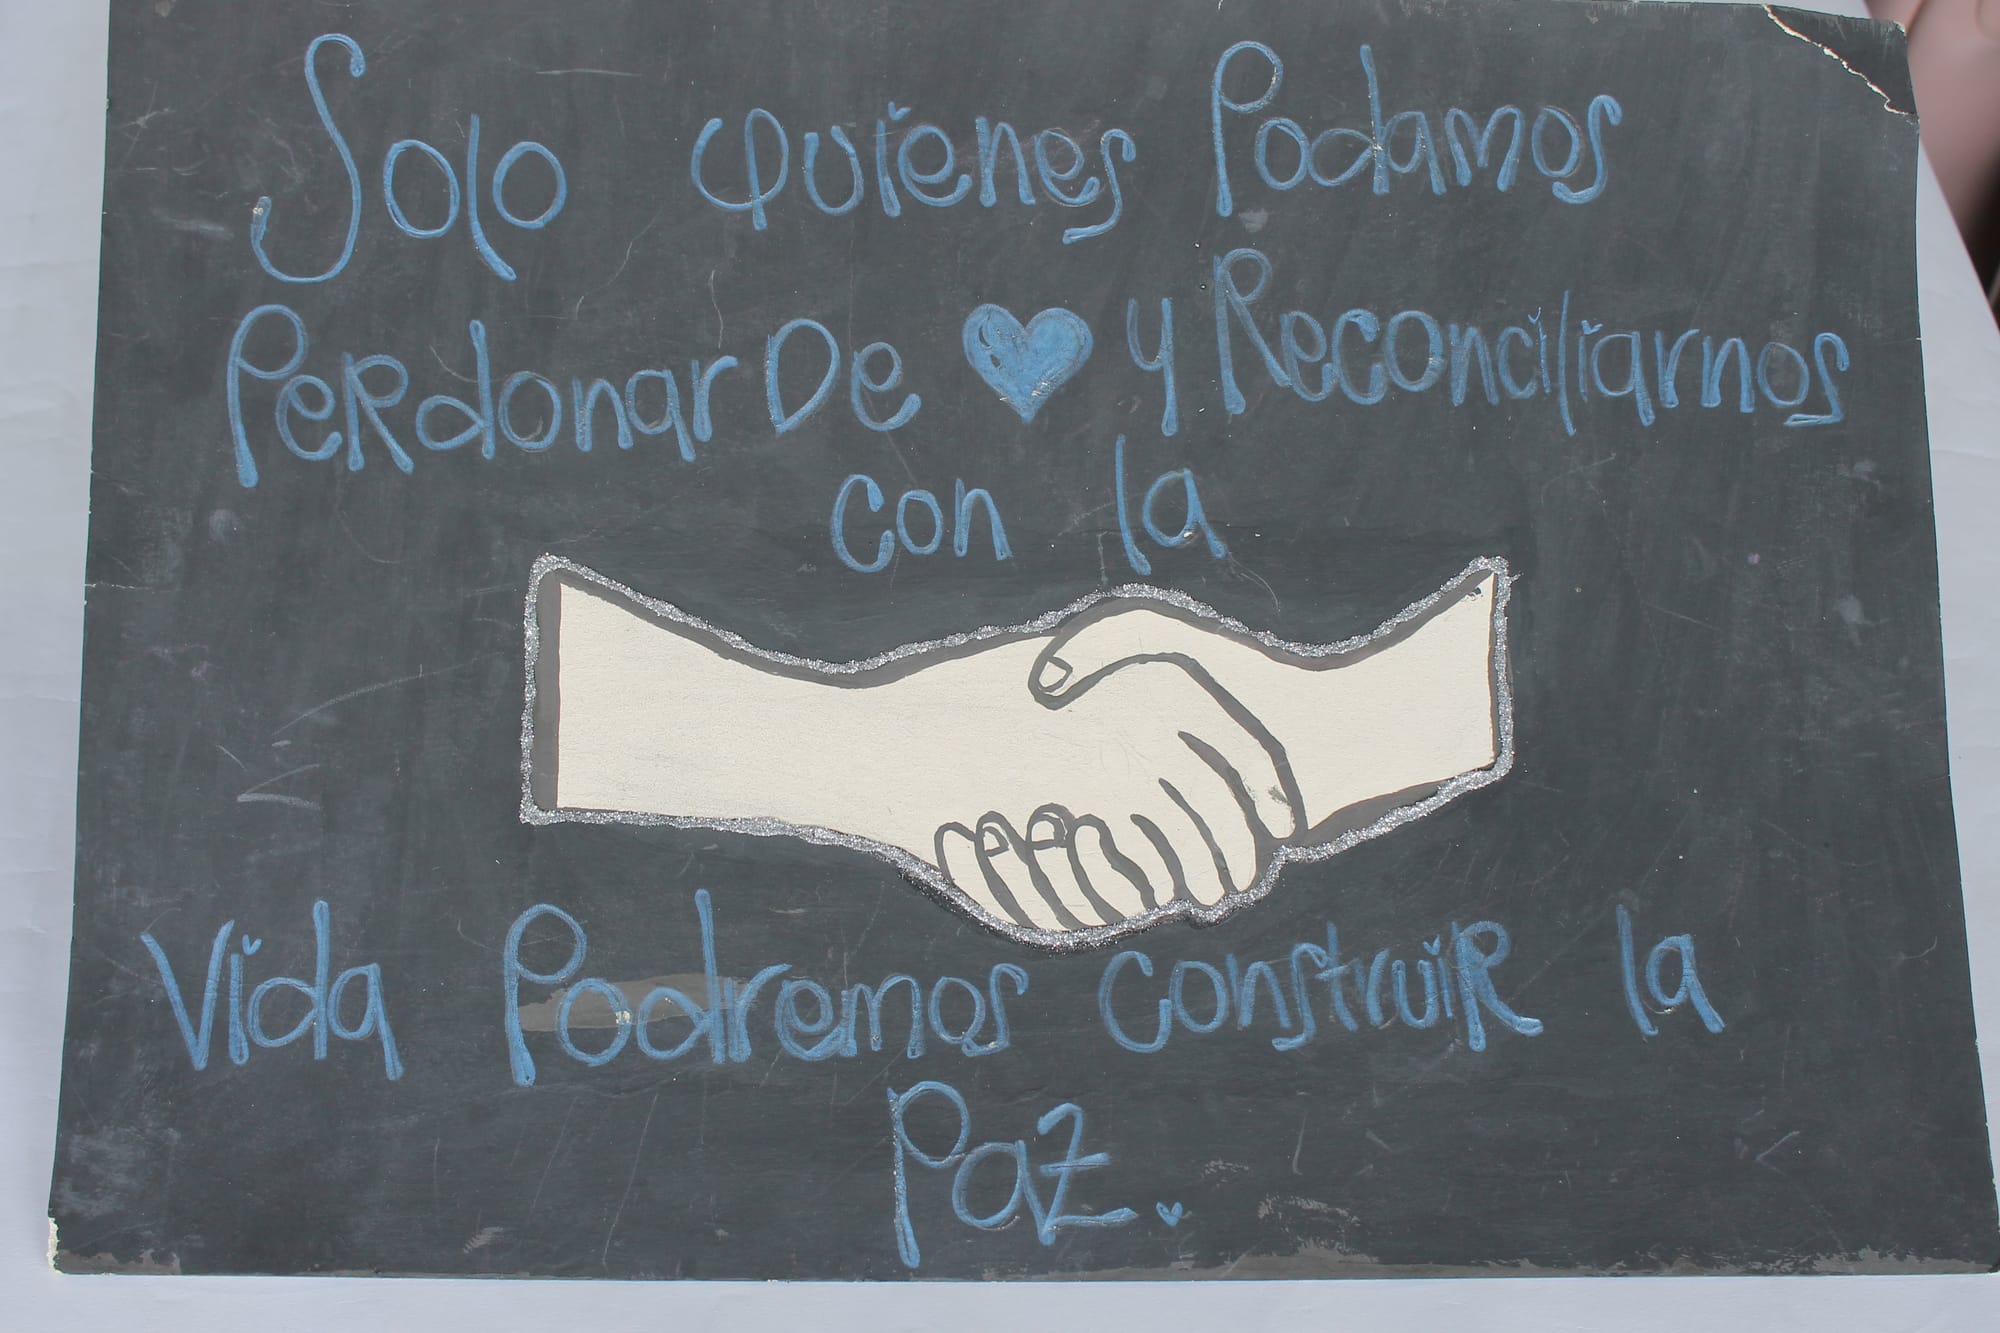 Solo Quienes Podamos
Perdonar De ♥ y Reconciliarnos
con la
Vida Podremos construir la
Paz.